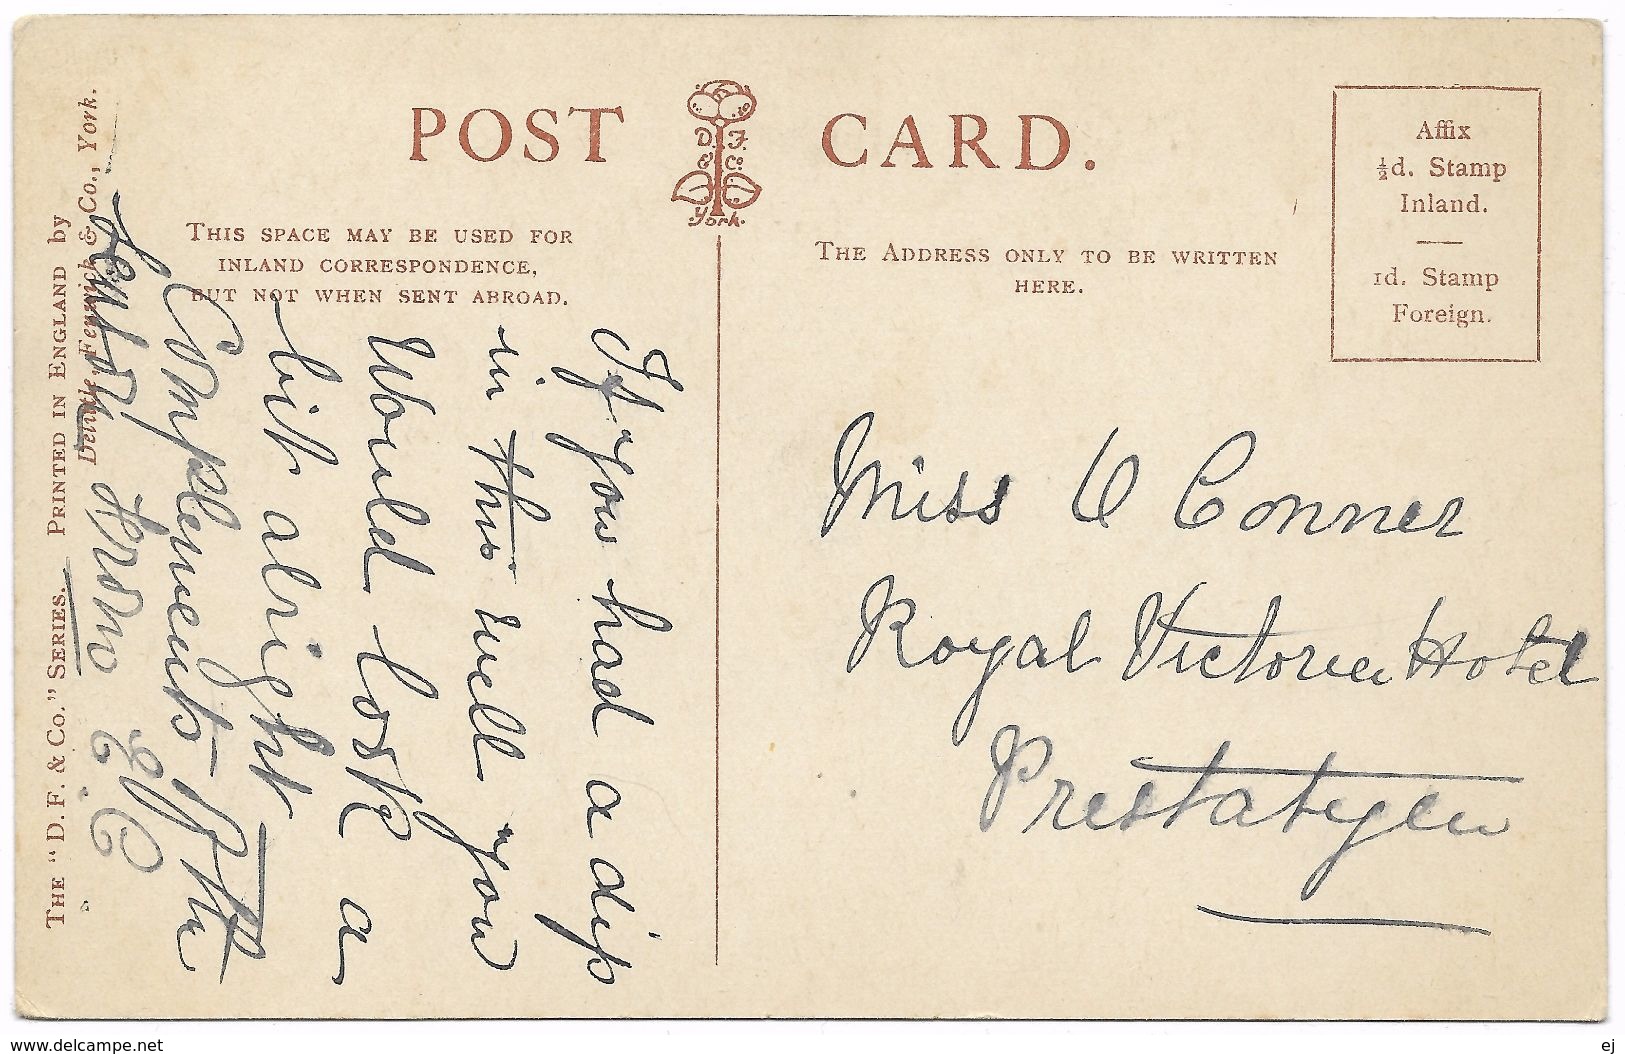 POST CARD.
D. F.
& Co.
York.
THIS SPACE MAY BE USED FOR
INLAND CORRESPONDENCE,
BUT NOT WHEN SENT ABROAD.
THE ADDRESS ONLY TO BE WRITTEN
HERE.
Affix
½d. Stamp
Inland.
1d. Stamp
Foreign.
If you had a dip
in this well you
Would look a
bit alright
Compliments of the
from
Miss O Conner
Royal Victoria Hotel
Prestatyen
THE "D. F. & CO." SERIES. PRINTED IN ENGLAND by
Delittle, Fenwick & Co., York.
www.delcampe.net
ej